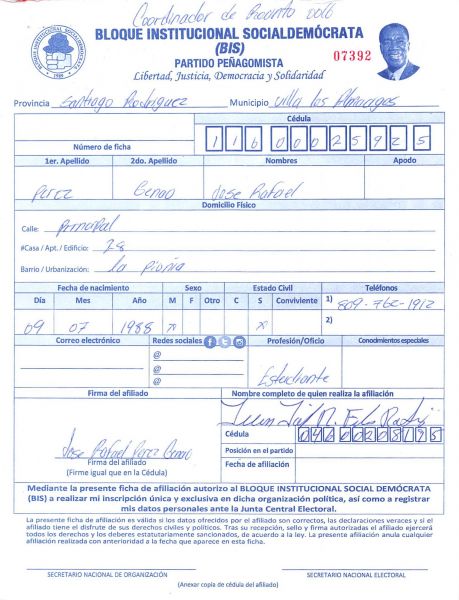 Coordinador de Recinto 0016
BLOQUE INSTITUCIONAL SOCIALDEMÓCRATA
(BIS)
PARTIDO PEÑAGOMISTA
Libertad, Justicia, Democracia y Solidaridad
07392
Provincia Santiago Rodriguez Municipio Villa los Almacigos
Cédula
Número de ficha 116 0002592 5
1er. Apellido 2do. Apellido Nombres Apodo
Perez Genao Jose Rafael
Domicilio Físico
Calle: Principal
#Casa / Apt. / Edificio: 28
Barrio / Urbanización: la Pionia
Fecha de nacimiento Sexo Estado Civil Teléfonos
Día Mes Año M F Otro C S Conviviente 1) 809-762-1912
09 07 1988 x x 2)
Correo electrónico Redes sociales Profesión/Oficio Conocimientos especiales
@
@
@
Estudiante
Firma del afiliado Nombre completo de quien realiza la afiliación
Cédula
Posición en el partido
Fecha de afiliación
Jose Rafael Perez Genao
Firma del afiliado
(Firme igual que en la Cédula)
Mediante la presente ficha de afiliación autorizo al BLOQUE INSTITUCIONAL SOCIAL DEMÓCRATA
(BIS) a realizar mi inscripción única y exclusiva en dicha organización política, así como a registrar
mis datos personales ante la Junta Central Electoral.
La presente ficha de afiliación es válida si los datos ofrecidos por el afiliado son correctos, las declaraciones veraces y si el
afiliado tiene el disfrute de sus derechos civiles y políticos. Tras su recepción, sello y firma autorizadas el afiliado ejercerá
todos los derechos y los deberes estatutariamente sancionados, de acuerdo a la ley. La presente afiliación anula cualquier
afiliación realizada con anterioridad a la fecha que aparece en esta ficha.
SECRETARIO NACIONAL DE ORGANIZACIÓN SECRETARIO NACIONAL ELECTORAL
(Anexar copia de cédula del afiliado)